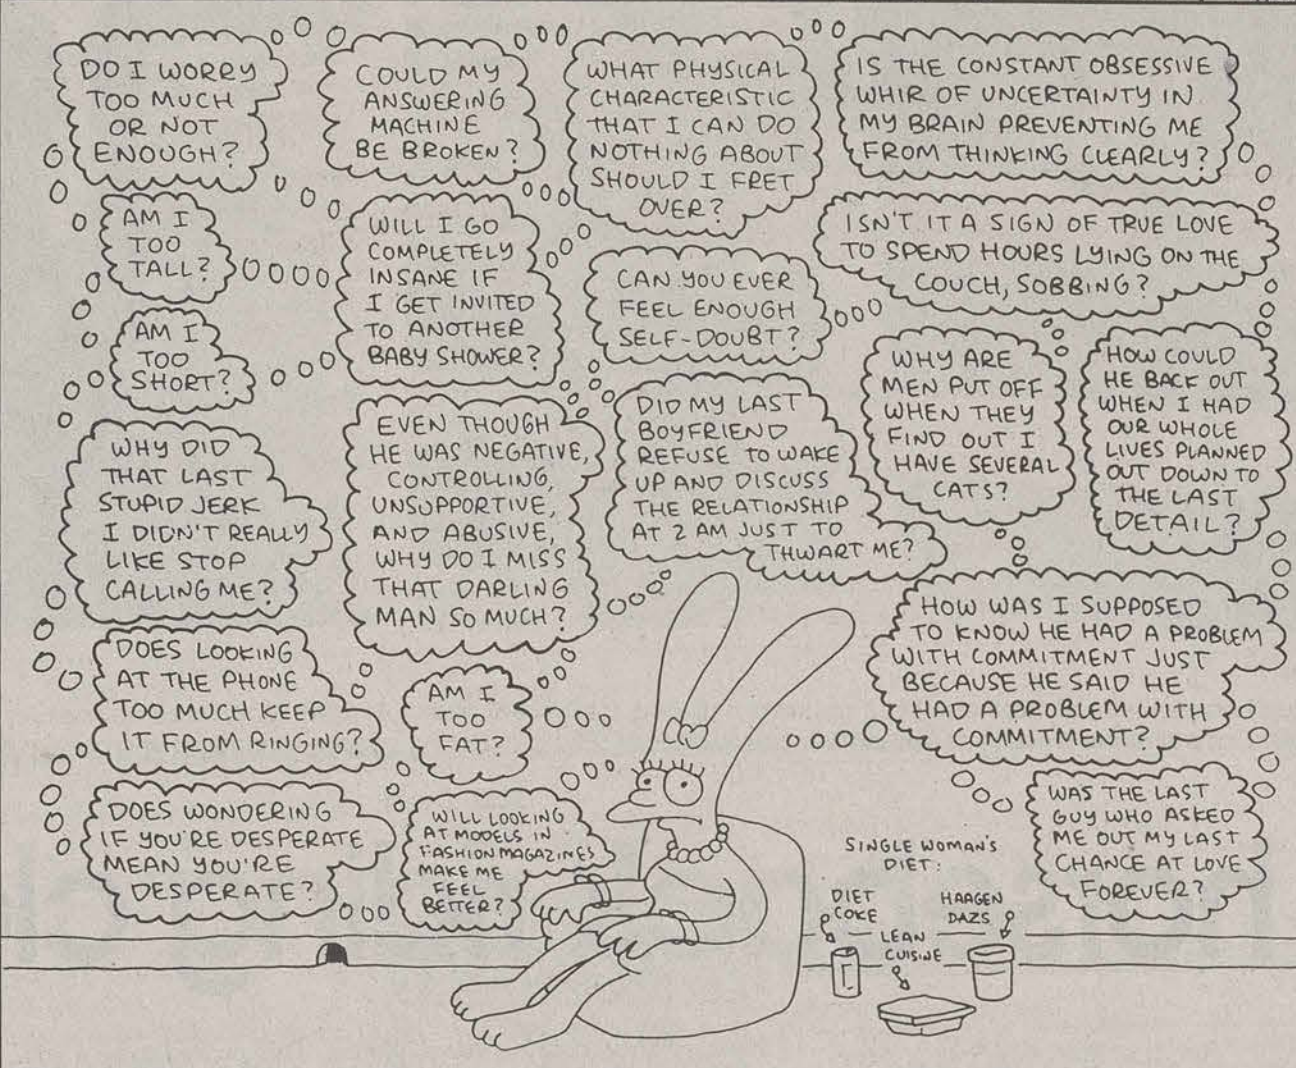 DO I WORRY
TOO MUCH
OR NOT
ENOUGH?
COULD MY
ANSWERING
MACHINE
BE BROKEN?
WHAT PHYSICAL
CHARACTERISTIC
THAT I CAN DO
NOTHING ABOUT
SHOULD I FRET
OVER?
IS THE CONSTANT OBSESSIVE
WHIR OF UNCERTAINTY IN
MY BRAIN PREVENTING ME
FROM THINKING CLEARLY?
AM I
TOO
TALL?
WILL I GO
COMPLETELY
INSANE IF
I GET INVITED
TO ANOTHER
BABY SHOWER?
CAN YOU EVER
FEEL ENOUGH
SELF-DOUBT?
ISN'T IT A SIGN OF TRUE LOVE
TO SPEND HOURS LYING ON THE
COUCH, SOBBING?
AM I
TOO
SHORT?
WHY ARE
MEN PUT OFF
WHEN THEY
FIND OUT I
HAVE SEVERAL
CATS?
HOW COULD
HE BACK OUT
WHEN I HAD
OUR WHOLE
LIVES PLANNED
OUT DOWN TO
THE LAST
DETAIL?
WHY DID
THAT LAST
STUPID JERK
I DIDN'T REALLY
LIKE STOP
CALLING ME?
EVEN THOUGH
HE WAS NEGATIVE,
CONTROLLING,
UNSUPPORTIVE,
AND ABUSIVE,
WHY DO I MISS
THAT DARLING
MAN SO MUCH?
DID MY LAST
BOYFRIEND
REFUSE TO WAKE
UP AND DISCUSS
THE RELATIONSHIP
AT 2 AM JUST TO
THWART ME?
HOW WAS I SUPPOSED
TO KNOW HE HAD A PROBLEM
WITH COMMITMENT JUST
BECAUSE HE SAID HE
HAD A PROBLEM WITH
COMMITMENT?
DOES LOOKING
AT THE PHONE
TOO MUCH KEEP
IT FROM RINGING?
AM I
TOO
FAT?
DOES WONDERING
IF YOU'RE DESPERATE
MEAN YOU'RE
DESPERATE?
WILL LOOKING
AT MODELS IN
FASHION MAGAZINES
MAKE ME
FEEL
BETTER?
WAS THE LAST
GUY WHO ASKED
ME OUT MY LAST
CHANCE AT LOVE
FOREVER?
SINGLE WOMAN'S
DIET:
DIET
COKE
LEAN
CUISINE
HAAGEN
DAZS